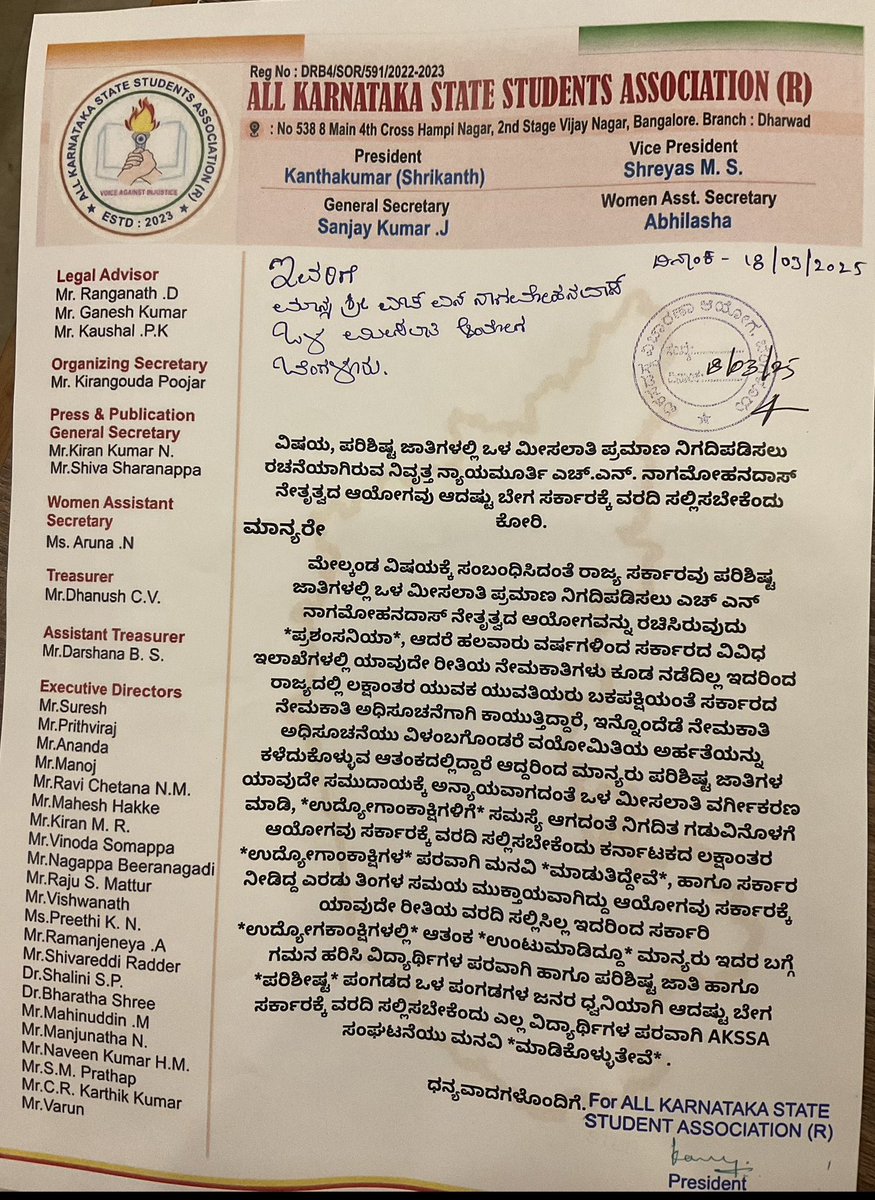 Reg No : DRB4/SOR/591/2022-2023
ALL KARNATAKA STATE STUDENTS ASSOCIATION (R)
: No 538 8 Main 4th Cross Hampi Nagar, 2nd Stage Vijay Nagar, Bangalore. Branch : Dharwad
President
Kanthakumar (Shrikanth)
Vice President
Shreyas M. S.
General Secretary
Sanjay Kumar .J
Women Asst. Secretary
Abhilasha
ALL KARNATAKA STATE STUDENTS ASSOCIATION (R)
VOICE AGAINST INJUSTICE
ESTD : 2023
Legal Advisor
Mr. Ranganath .D
Mr. Ganesh Kumar
Mr. Kaushal .P.K
Organizing Secretary
Mr. Kirangouda Poojar
Press & Publication
General Secretary
Mr.Kiran Kumar N.
Mr.Shiva Sharanappa
Women Assistant
Secretary
Ms. Aruna .N
Treasurer
Mr.Dhanush C.V.
Assistant Treasurer
Mr.Darshana B. S.
Executive Directors
Mr.Suresh
Mr.Prithviraj
Mr.Ananda
Mr.Manoj
Mr.Ravi Chetana N.M.
Mr.Mahesh Hakke
Mr.Kiran M. R.
Mr.Vinoda Somappa
Mr.Nagappa Beeranagadi
Mr.Raju S. Mattur
Mr.Vishwanath
Ms.Preethi K. N.
Mr.Ramanjeneya .A
Mr.Shivareddi Radder
Dr.Shalini S.P.
Dr.Bharatha Shree
Mr.Mahinuddin .M
Mr.Manjunatha N.
Mr.Naveen Kumar H.M.
Mr.S.M. Prathap
Mr.C.R. Karthik Kumar
Mr.Varun
ದಿನಾಂಕ - 18/03/2025
ಇವರಿಗೆ
ಮಾನ್ಯ ಶ್ರೀ ಎಚ್ ಎನ್ ನಾಗಮೋಹನದಾಸ್
ಒಳ ಮೀಸಲಾತಿ ಆಯೋಗ
ಬೆಂಗಳೂರು.
18/03/25
ವಿಷಯ, ಪರಿಶಿಷ್ಟ ಜಾತಿಗಳಲ್ಲಿ ಒಳ ಮೀಸಲಾತಿ ಪ್ರಮಾಣ ನಿಗದಿಪಡಿಸಲು
ರಚನೆಯಾಗಿರುವ ನಿವೃತ್ತ ನ್ಯಾಯಮೂರ್ತಿ ಎಚ್.ಎನ್. ನಾಗಮೋಹನದಾಸ್
ನೇತೃತ್ವದ ಆಯೋಗವು ಆದಷ್ಟು ಬೇಗ ಸರ್ಕಾರಕ್ಕೆ ವರದಿ ಸಲ್ಲಿಸಬೇಕೆಂದು
ಕೋರಿ.
ಮಾನ್ಯರೇ
ಮೇಲ್ಕಂಡ ವಿಷಯಕ್ಕೆ ಸಂಬಂಧಿಸಿದಂತೆ ರಾಜ್ಯ ಸರ್ಕಾರವು ಪರಿಶಿಷ್ಟ
ಜಾತಿಗಳಲ್ಲಿ ಒಳ ಮೀಸಲಾತಿ ಪ್ರಮಾಣ ನಿಗದಿಪಡಿಸಲು ಎಚ್ ಎನ್
ನಾಗಮೋಹನದಾಸ್ ನೇತೃತ್ವದ ಆಯೋಗವನ್ನು ರಚಿಸಿರುವುದು
*ಪ್ರಶಂಸನಿಯಾ*, ಆದರೆ ಹಲವಾರು ವರ್ಷಗಳಿಂದ ಸರ್ಕಾರದ ವಿವಿಧ
ಇಲಾಖೆಗಳಲ್ಲಿ ಯಾವುದೇ ರೀತಿಯ ನೇಮಕಾತಿಗಳು ಕೂಡ ನಡೆದಿಲ್ಲ ಇದರಿಂದ
ರಾಜ್ಯದಲ್ಲಿ ಲಕ್ಷಾಂತರ ಯುವಕ ಯುವತಿಯರು ಬಕಪಕ್ಷಿಯಂತೆ ಸರ್ಕಾರದ
ನೇಮಕಾತಿ ಅಧಿಸೂಚನೆಗಾಗಿ ಕಾಯುತ್ತಿದ್ದಾರೆ, ಇನ್ನೊಂದೆಡೆ ನೇಮಕಾತಿ
ಅಧಿಸೂಚನೆಯು ವಿಳಂಬಗೊಂಡರೆ ವಯೋಮಿತಿಯ ಅರ್ಹತೆಯನ್ನು
ಕಳೆದುಕೊಳ್ಳುವ ಆತಂಕದಲ್ಲಿದ್ದಾರೆ ಆದ್ದರಿಂದ ಮಾನ್ಯರು ಪರಿಶಿಷ್ಟ ಜಾತಿಗಳ
ಯಾವುದೇ ಸಮುದಾಯಕ್ಕೆ ಅನ್ಯಾಯವಾಗದಂತೆ ಒಳ ಮೀಸಲಾತಿ ವರ್ಗೀಕರಣ
ಮಾಡಿ, *ಉದ್ಯೋಗಾಂಕಾಕ್ಷಿಗಳಿಗೆ* ಸಮಸ್ಯೆ ಆಗದಂತೆ ನಿಗದಿತ ಗಡುವಿನೊಳಗೆ
ಆಯೋಗವು ಸರ್ಕಾರಕ್ಕೆ ವರದಿ ಸಲ್ಲಿಸಬೇಕೆಂದು ಕರ್ನಾಟಕದ ಲಕ್ಷಾಂತರ
*ಉದ್ಯೋಗಾಂಕಾಕ್ಷಿಗಳ* ಪರವಾಗಿ ಮನವಿ *ಮಾಡುತಿದ್ದೇವೆ*, ಹಾಗೂ ಸರ್ಕಾರ
ನೀಡಿದ್ದ ಎರಡು ತಿಂಗಳ ಸಮಯ ಮುಕ್ತಾಯವಾಗಿದ್ದು ಆಯೋಗವು ಸರ್ಕಾರಕ್ಕೆ
ಯಾವುದೇ ರೀತಿಯ ವರದಿ ಸಲ್ಲಿಸಿಲ್ಲ ಇದರಿಂದ ಸರ್ಕಾರಿ
*ಉದ್ಯೋಗಕಾಂಕ್ಷಿಗಳಲ್ಲಿ* ಆತಂಕ *ಉಂಟುಮಾಡಿದ್ದೂ* ಮಾನ್ಯರು ಇದರ ಬಗ್ಗೆ
ಗಮನ ಹರಿಸಿ ವಿದ್ಯಾರ್ಥಿಗಳ ಪರವಾಗಿ ಹಾಗೂ ಪರಿಶಿಷ್ಟ ಜಾತಿ ಹಾಗೂ
*ಪರಿಶೀಷ್ಟ* ಪಂಗಡದ ಒಳ ಪಂಗಡಗಳ ಜನರ ಧ್ವನಿಯಾಗಿ ಆದಷ್ಟು ಬೇಗ
ಸರ್ಕಾರಕ್ಕೆ ವರದಿ ಸಲ್ಲಿಸಬೇಕೆಂದು ಎಲ್ಲ ವಿದ್ಯಾರ್ಥಿಗಳ ಪರವಾಗಿ AKSSA
ಸಂಘಟನೆಯು ಮನವಿ *ಮಾಡಿಕೊಳ್ಳುತೇವೆ* .
ಧನ್ಯವಾದಗಳೊಂದಿಗೆ.
For ALL KARNATAKA STATE
STUDENT ASSOCIATION (R)
President